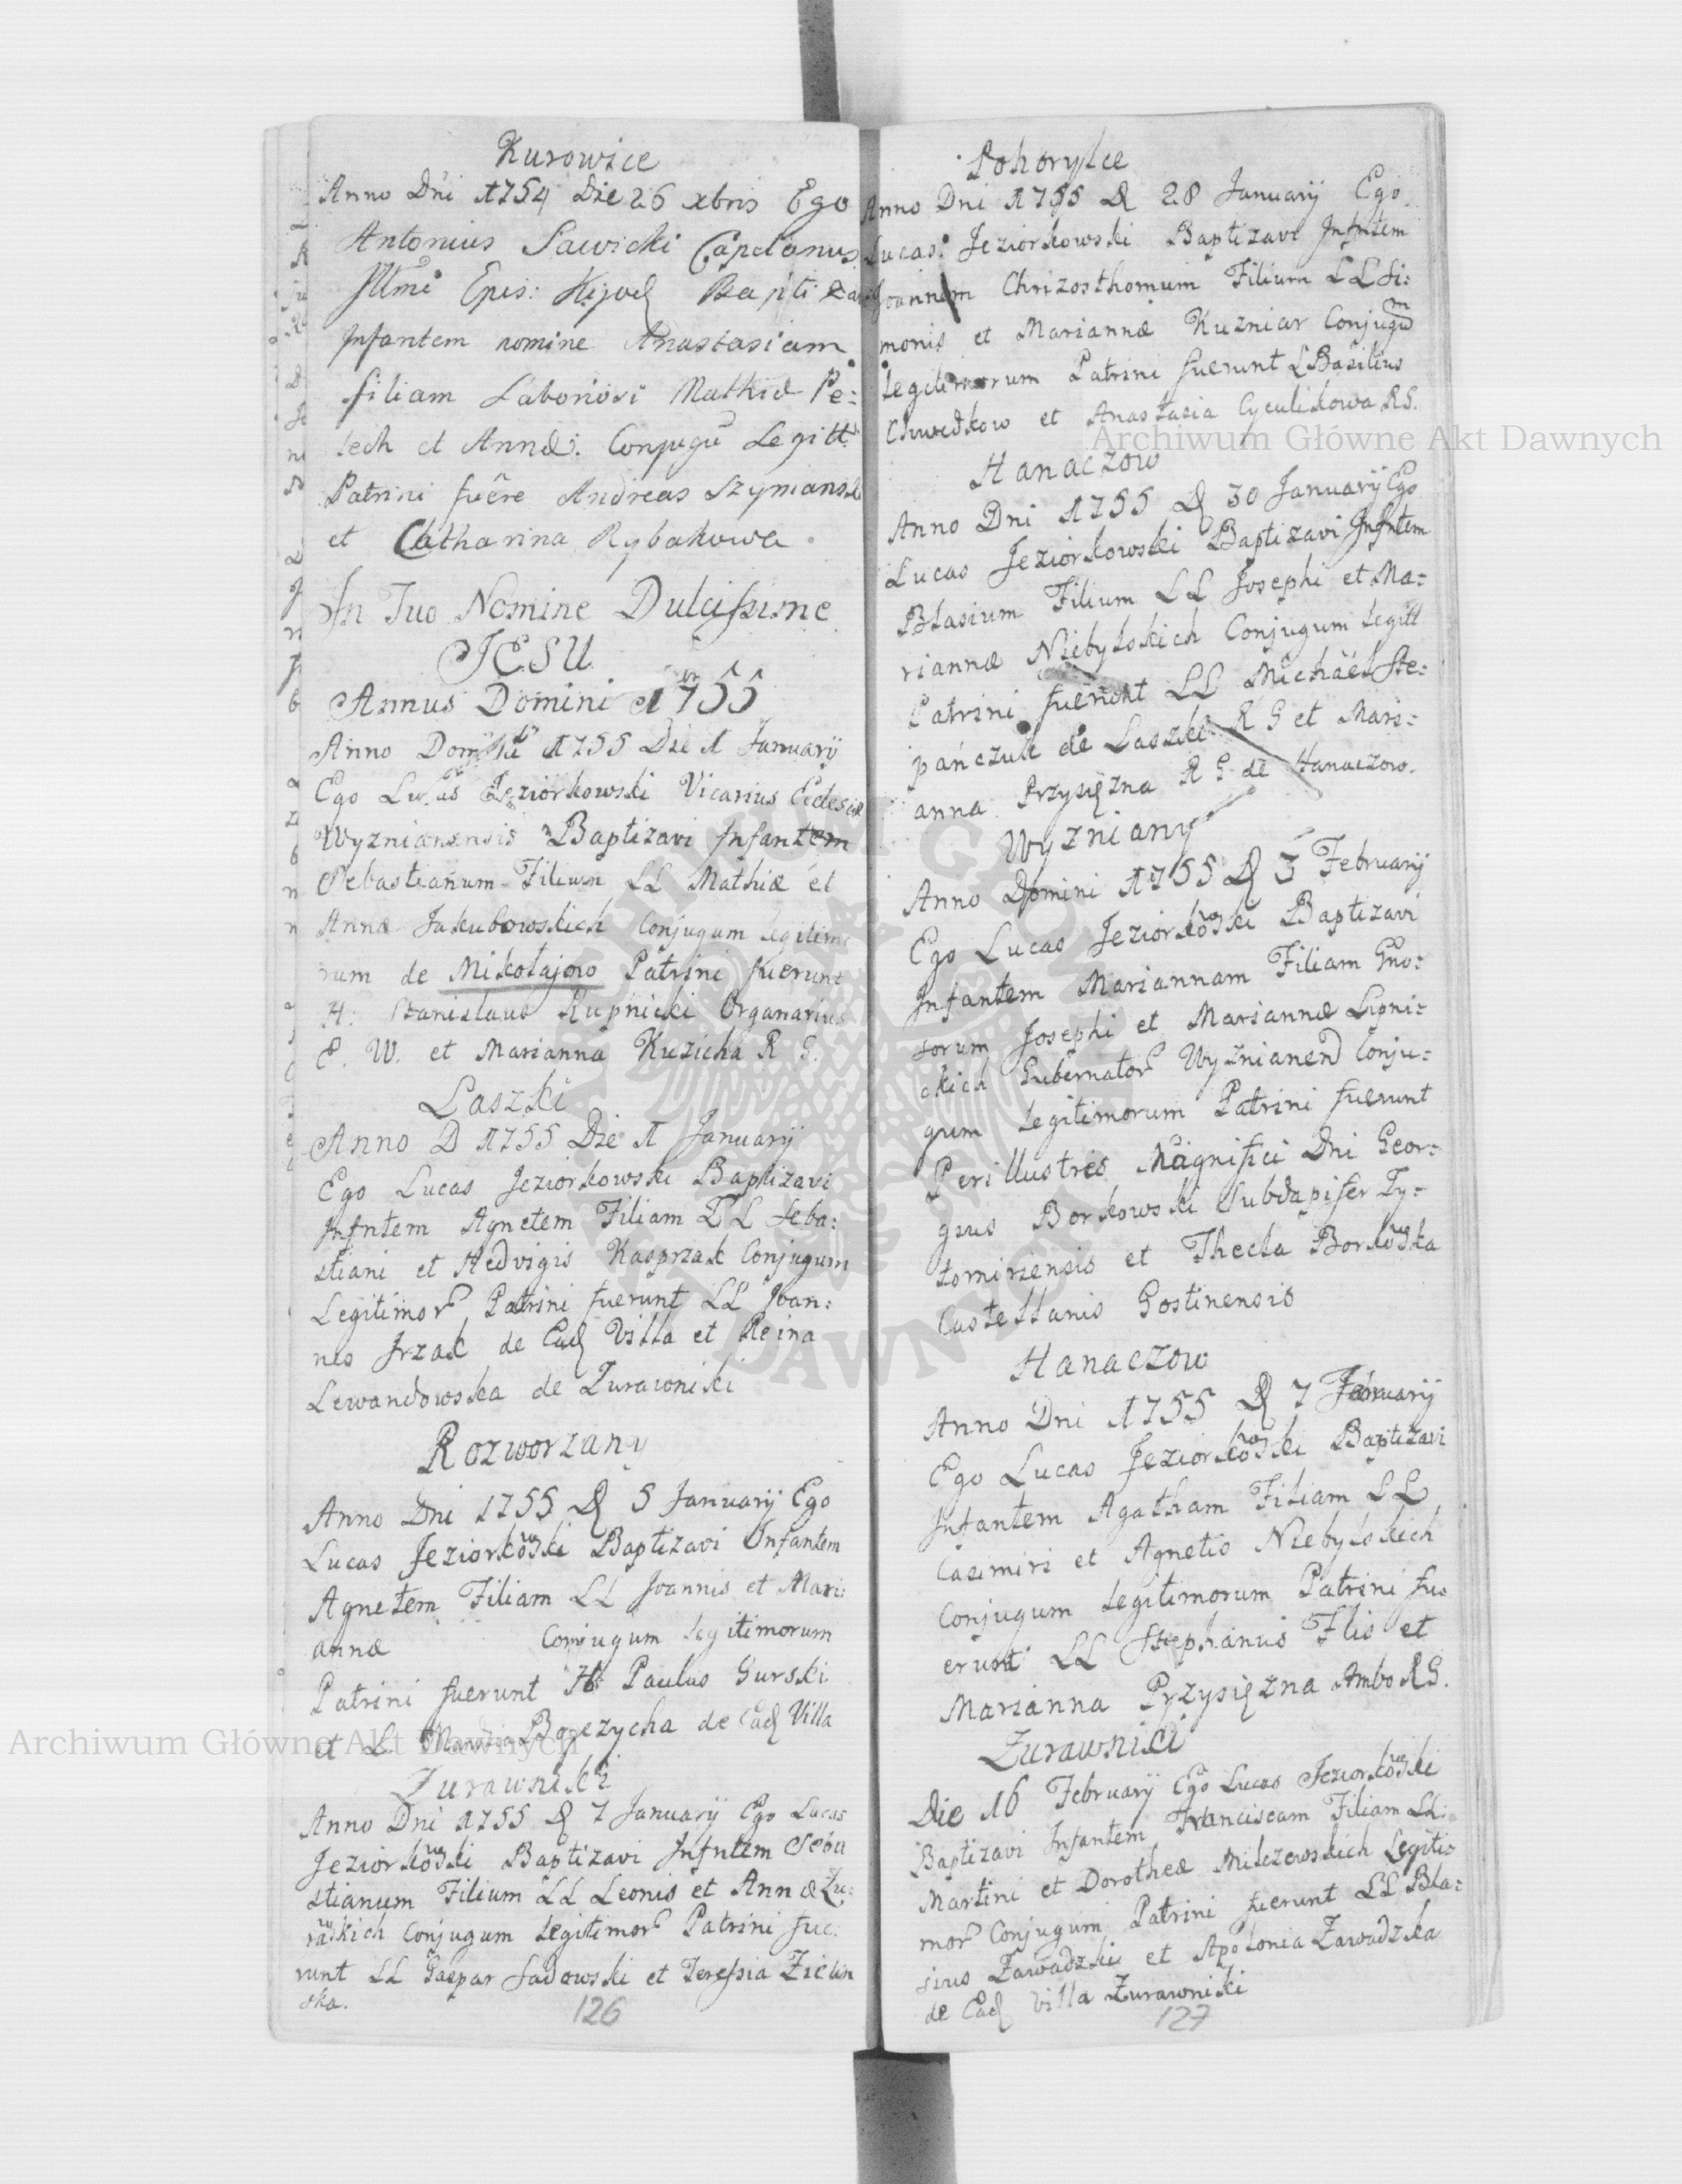 Kurowice
Anno Dńi 1754 Die 26 xbris Ego
Antonius Sawicki Capelanus
Illmi Epis: Kijov Baptizavi
Infantem nomine Anastasiam
filiam Laboriosi Mathiæ Pe:
lech et Annæ Conjugũ Legitt:
Patrini fuêre Andreas Szymansk
et Catharina Rybakowa.
In Tuo Nomine Dulcissime
JESU
Annus Domini 1755
Anno Domini 1755 Die 1 Januarij
Ego Lucas Jeziorkowski Vicarius Ecclesiæ
Wyznianensis Baptizavi Infantem
Sebastianum Filium LL Mathiæ et
Annæ Jakubowskich Conjugum legitimo
rum de Mikołajow Patrini fuerunt
H. Stanislaus Kupnicki Organarius
E. W. et Marianna Kuzicha R G.
Laszki
Anno D 1755 Die 1 Januarij
Ego Lucas Jeziorkowski Baptizavi
Infntem Agnetem Filiam LL Seba:
stiani et Hedvigis Kasprzak Conjugum
Legitimor Patrini fuerunt LL Joan:
nes Jrzak de Ead Villa et Reina
Lewandowska de Zurawniki
Rozworzany
Anno Dni 1755 D 5 Januarij Ego
Lucas Jeziorkowski Baptizavi Infantem
Agnetem Filiam LL Joannis et Mari:
annæ Conjugum legitimorum
Patrini fuerunt H Paulus Gurski
et L. Borczycha de Ead Villa
Zurawniki
Anno Dni 1755 D 7 Januarij Ego Lucas
Jeziorkowski Baptizavi Infntem Seba
stianum Filium LL Leonis et Annæ Zu:
rawskich Conjugum legitimor Patrini fue:
runt LL Gaspar Sadowski et Teressia Zielin
ska.
126
Pohorylce
Anno Dni 1755 D 28 Januarij Ego
Lucas Jeziorkowski Baptizavi Infntem
Joannem Chrizosthomum Filium LL Si:
monis et Mariannæ Kuzniar Conjugum
legitimorum Patrini fuerunt L Basilius
Chwedkow et Anastasia Cyculikowa RG.
Hanaczow
Anno Dni 1755 D 30 Januarij Ego
Lucas Jeziorkowski Baptizavi Infntem
Blasium Filium LL Josephi et Ma:
riannæ Niebylskich Conjugum legitt
Patrini fuerunt LL Michael Ste:
pańczuk de Laszki R G et Mari:
anna Przysięzna R G de Hanaczow.
Wyzniany
Anno Domini 1755 D 3 Februarij
Ego Lucas Jeziorkowski Baptizavi
Infantem Mariannam Filiam Gno:
sorum Josephi et Mariannæ Lipni:
ckich Gubernator Wyznianen Conju:
gum legitimorum Patrini fuerunt
Perillustres Magnifici Dni Geor:
gius Borkowski Subdapifer Zy:
tomiriensis et Thecla Borkowska
Castellanis Gostinensis
Hanaczow
Anno Dni 1755 D 7 Februarij
Ego Lucas Jeziorkowski Baptizavi
Infantem Agatham Filiam LL
Casimiri et Agnetis Niebylskich
Conjugum legitimorum Patrini fu
erunt LL Stephanus Flis et
Marianna Przysięzna Ambo RG.
Zurawniki
Die 16 Februarij Ego Lucas Jeziorkowski
Baptizavi Infantem Franciscam Filiam LL:
Martini et Dorotheæ Milczewskich Legiti:
mor Conjugum Patrini fuerunt LL Bla:
sius Zawadzki et Apolonia Zawadzka
de Ead Villa Zurawniki
127
Archiwum Główne Akt Dawnych
Archiwum Główne Akt Dawnych
ARCHIWUM GŁÓWNE AKT DAWNYCH